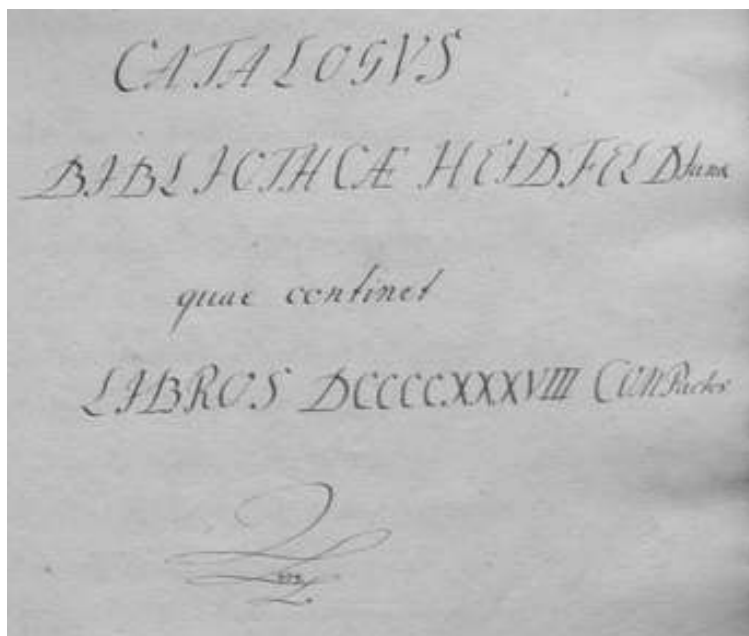 CATALOGVS
BIBLIOTHCÆ HEIDFELDIanæ
quae continet
LIBROS DCCCCXXXVIII CONPactos